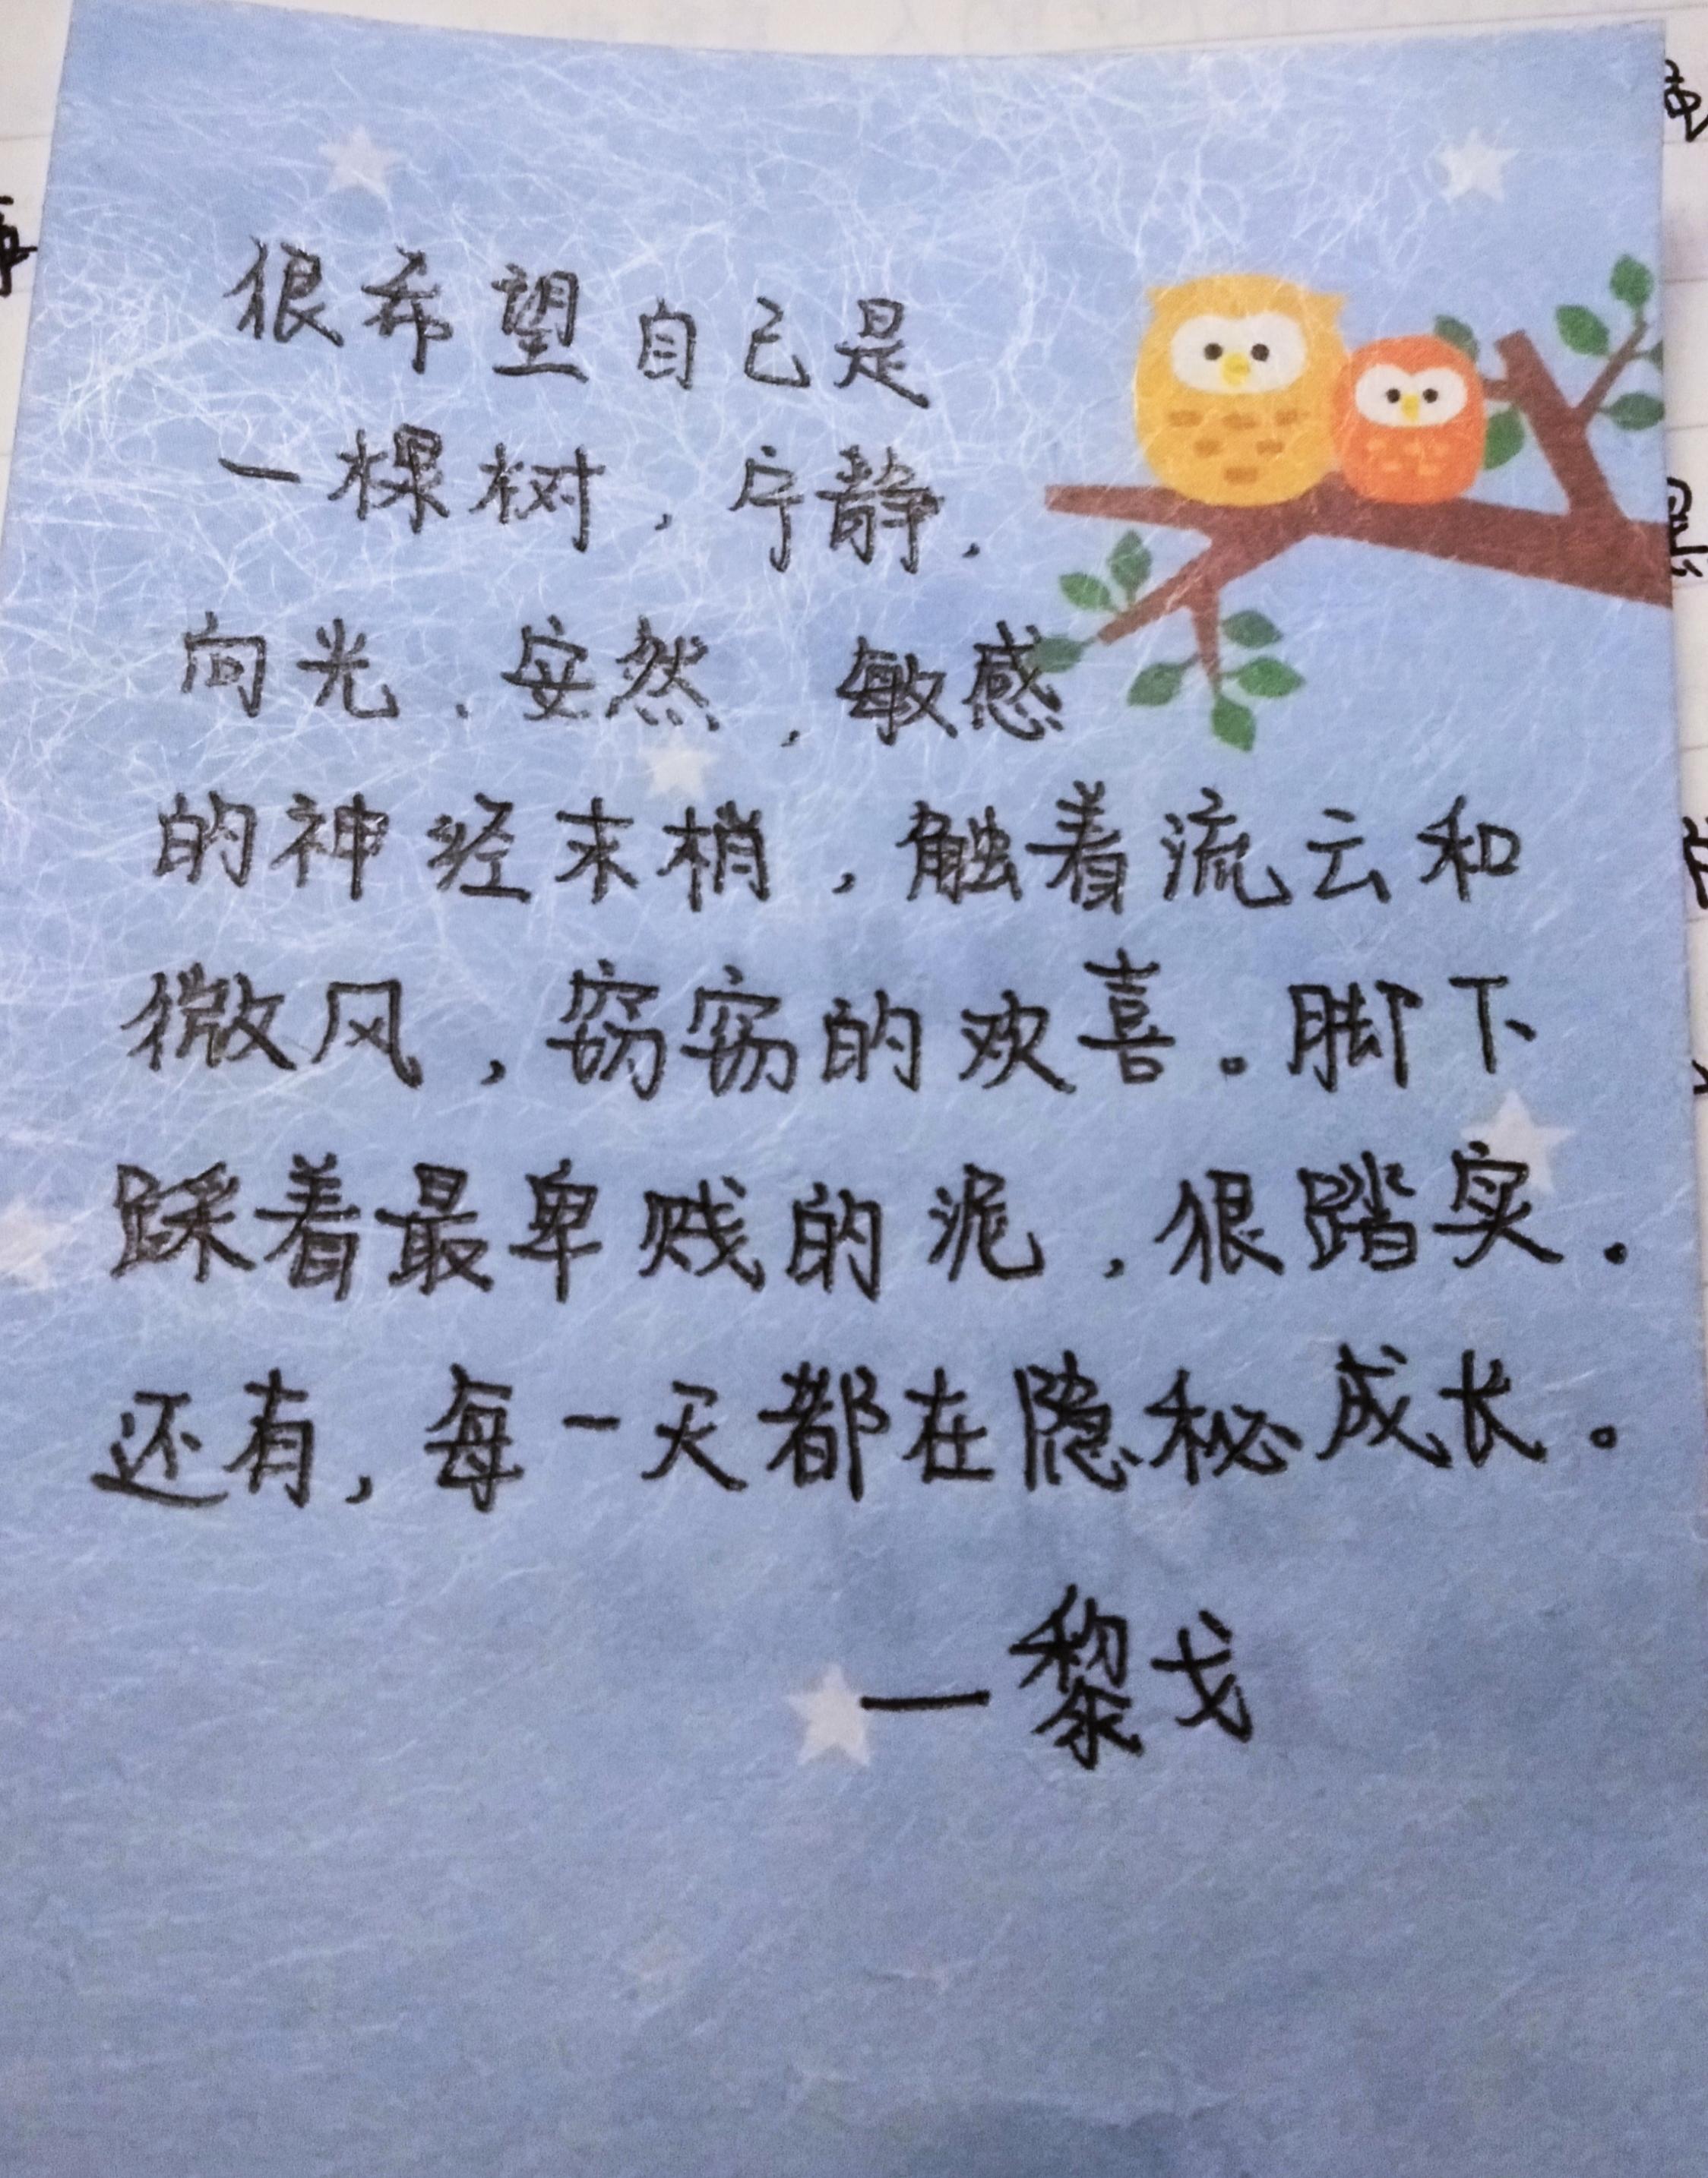 很希望自己是
一棵树，宁静，
向光，安然，敏感
的神经末梢，触着流云和
微风，窃窃的欢喜。脚下
踩着最卑贱的泥，很踏实。
还有，每一天都在隐秘成长。
—黎戈